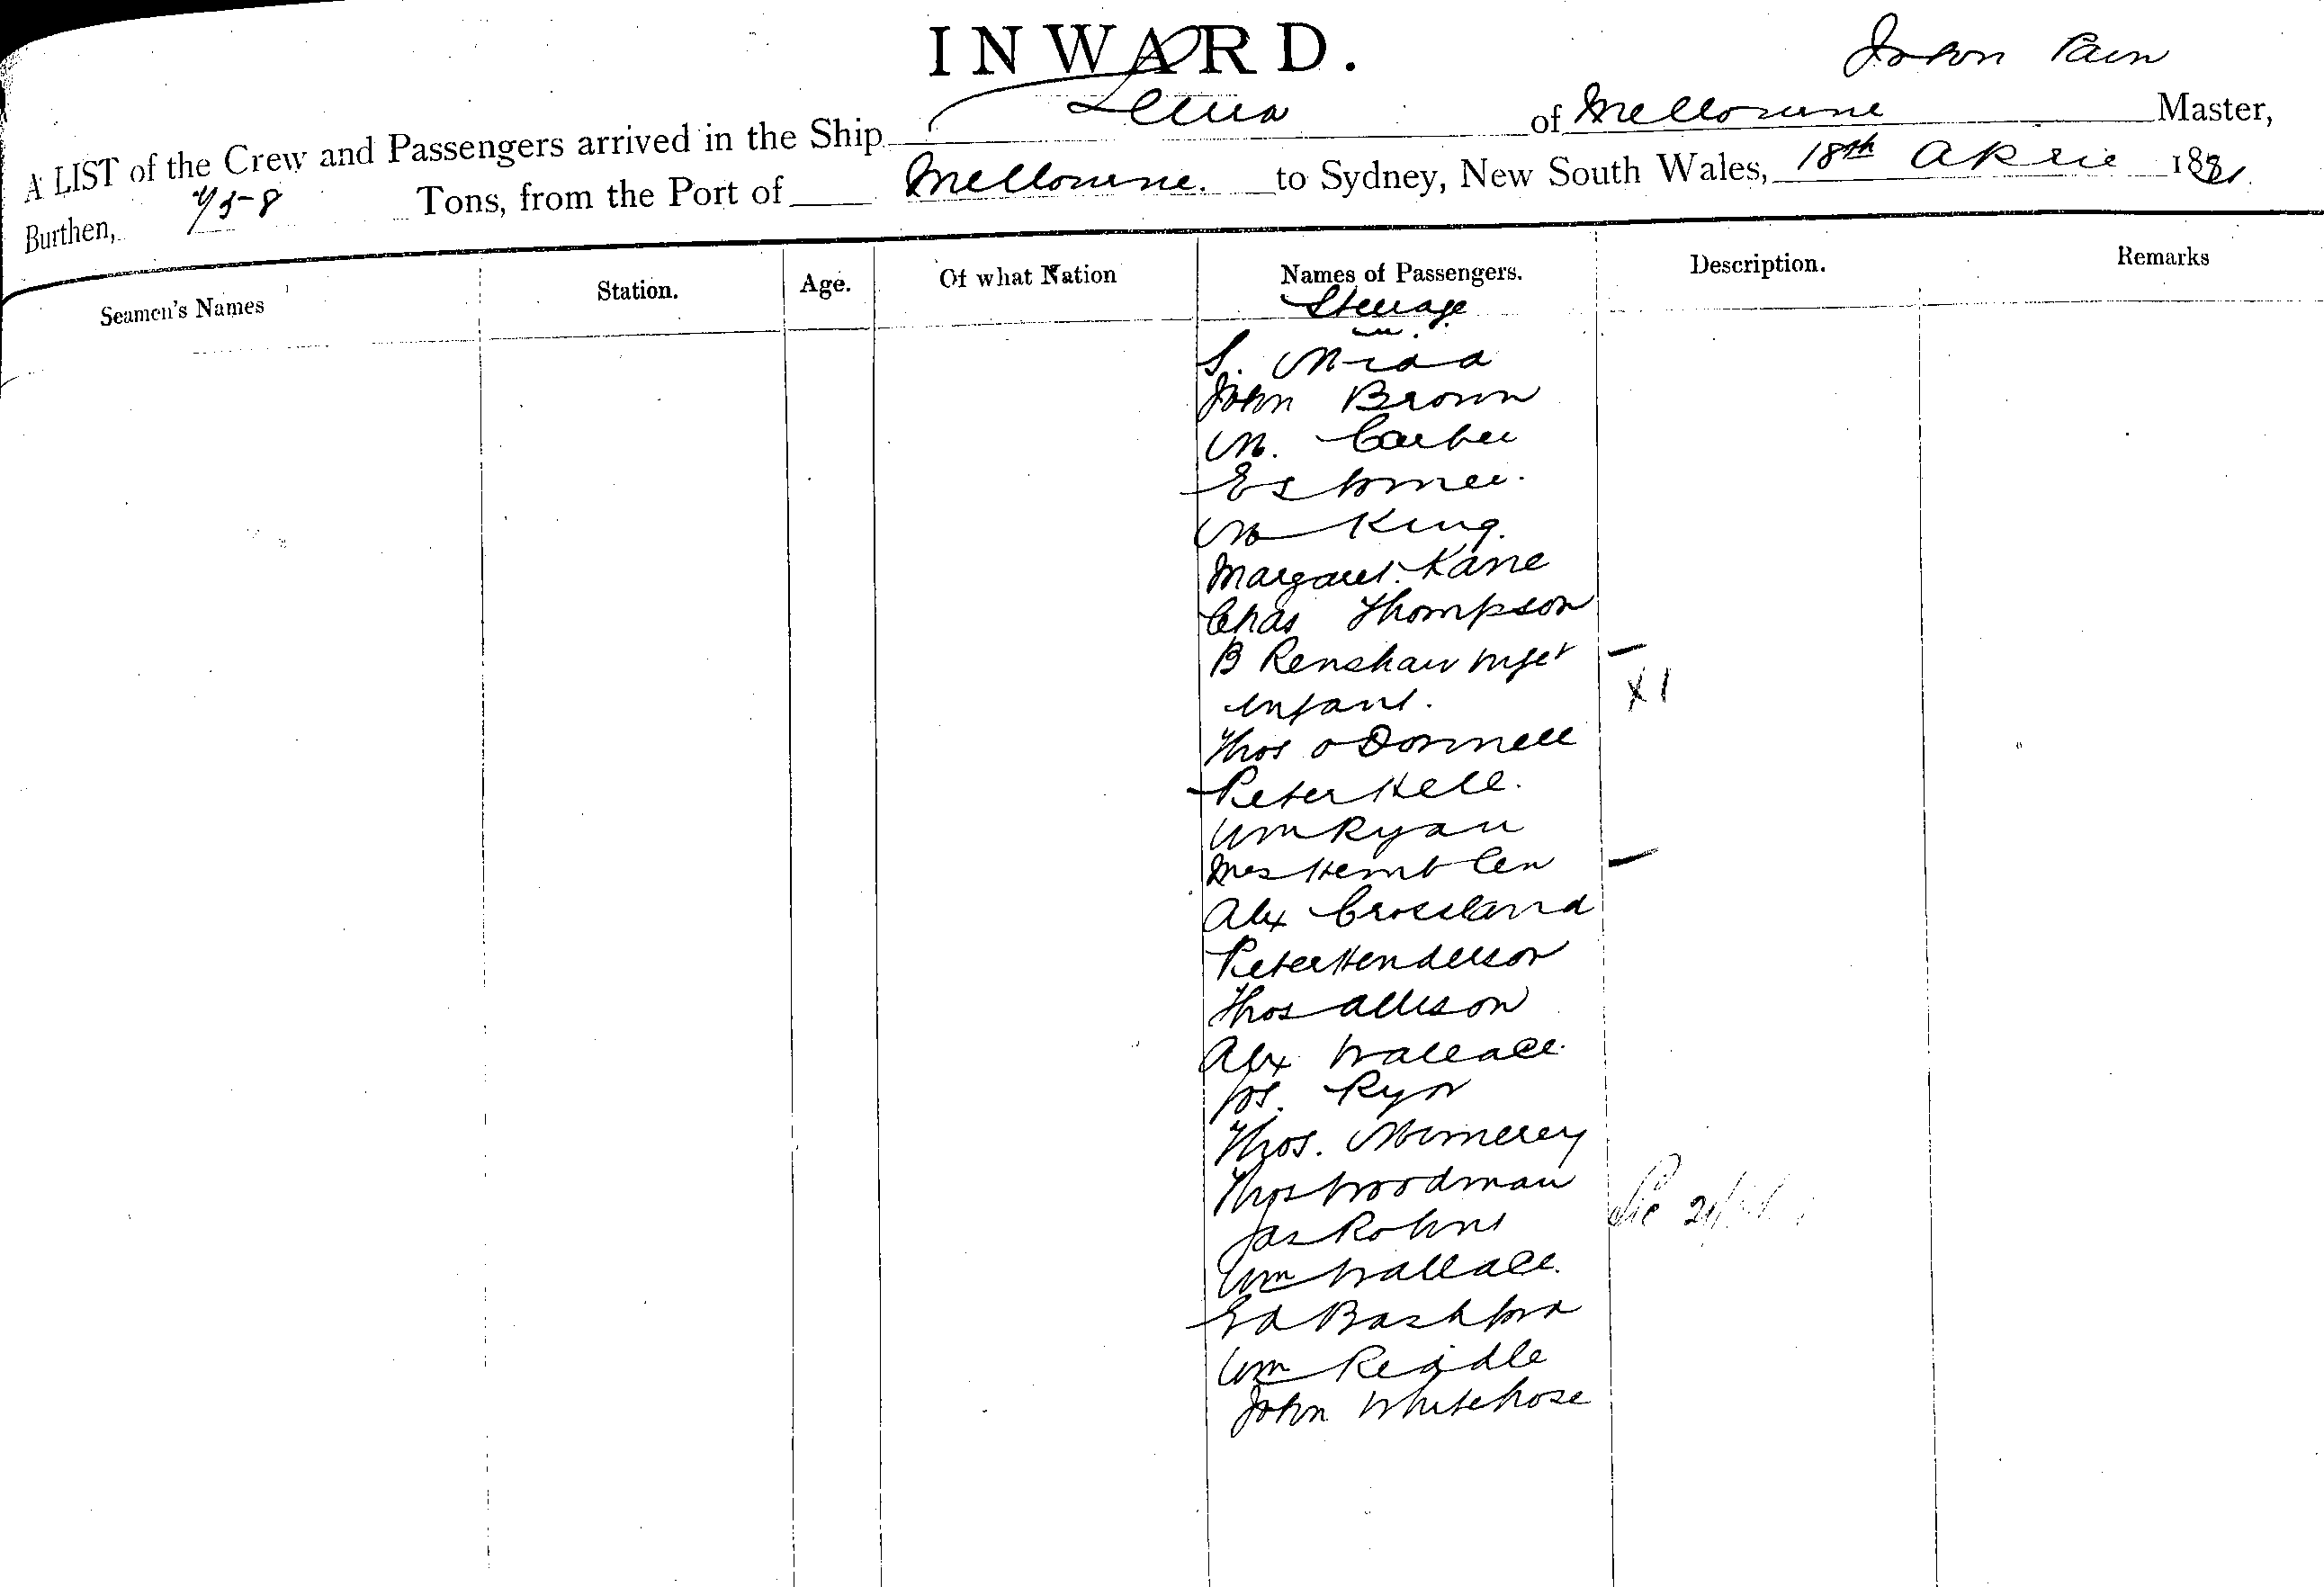 INWARD.
John Pain
A LIST of the Crew and Passengers arrived in the Ship of Melbourne Master,
Burthen, Tons, from the Port of Melbourne. to Sydney, New South Wales, 18th April 1881
Seamen's Names Station. Age. Of what Nation Names of Passengers. Description. Remarks
Steerage
S.
John Brown
M.
M King.
Margaret Kane
Chas Thompson
B Renshaw
infant.
X1
Thos O Donnell
Peter Kell.
Wm Ryan
Mrs
Alex Crossland
Peter Henderson
Thos Allison
Alex Wallace
Jos. Ryan
Thos.
Thos Woodman
Jas
Wm Wallace
Ed Bashford
Wm Reidle
John Whitehose